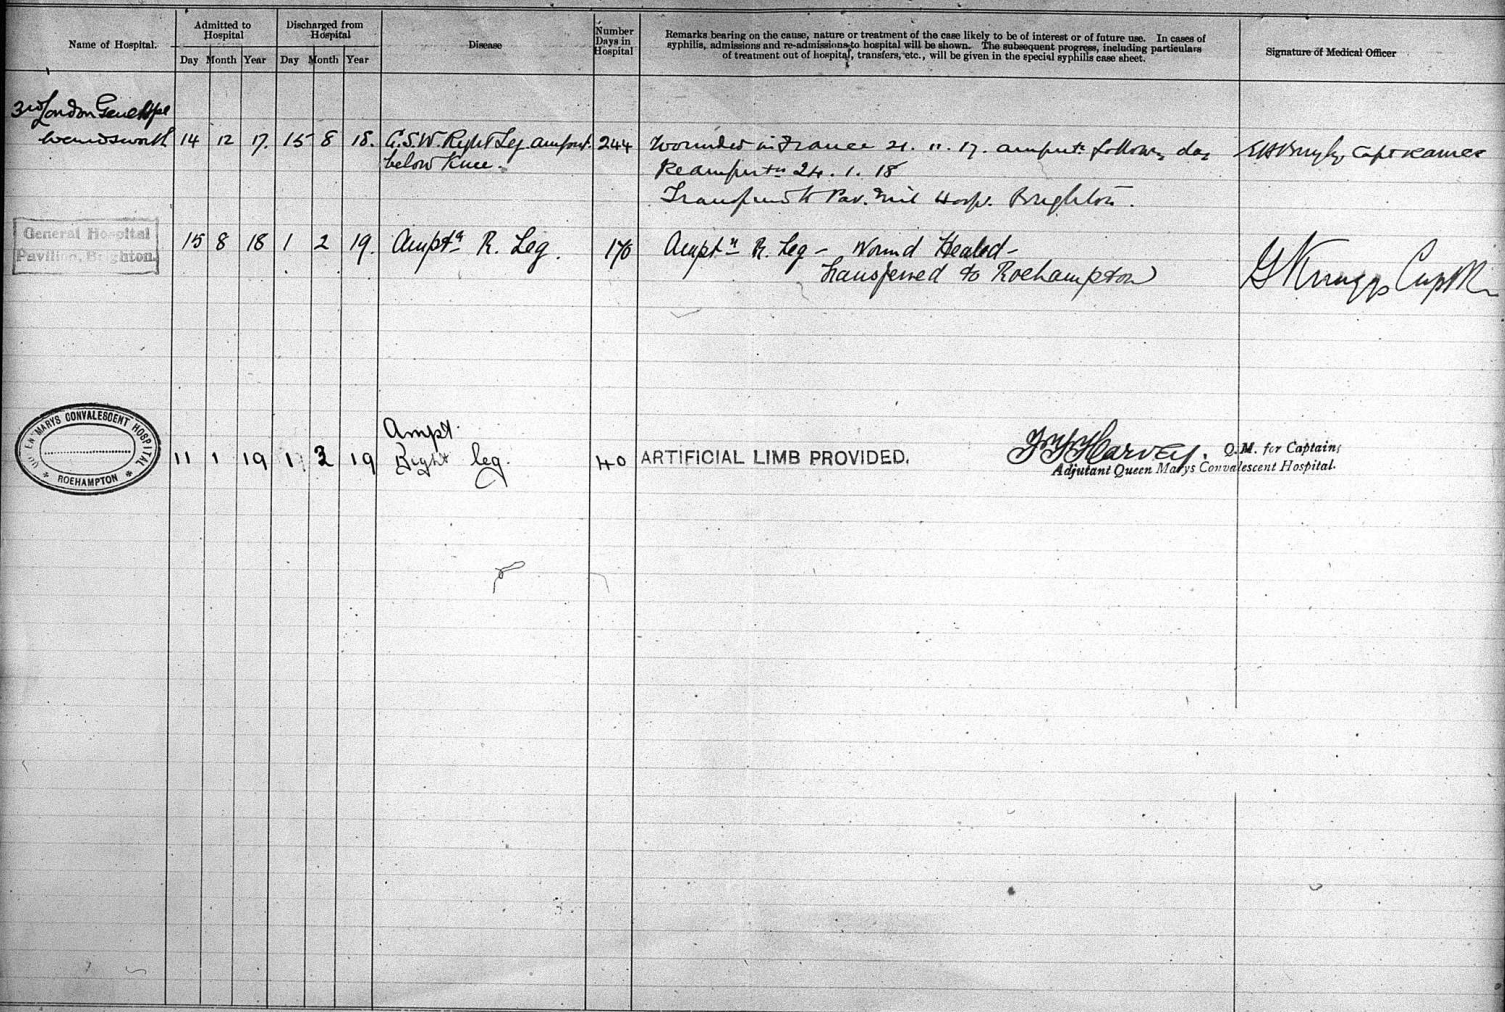 Name of Hospital.
Admitted to Hospital
Discharged from Hospital
Disease
Number Days in Hospital
Remarks bearing on the cause, nature or treatment of the case likely to be of interest or of future use. In cases of
syphilis, admissions and re-admissions to hospital will be shown. The subsequent progress, including particulars
of treatment out of hospital, transfers, etc., will be given in the special syphilis case sheet.
Signature of Medical Officer
Day Month Year Day Month Year
3rd London Genl Hpl
Wandsworth 14 12 17. 15 8 18. G.S.W. Right Leg. amput. 244 Wounded in France 21. 11. 17. amputn following day Capt RAMC
below Knee. Reamputn 24. 1. 18
Transferred to Pav. Mil Hosp. Brighton.
General Hospital
Pavilion, Brighton.
15 8 18 1 2 19. Amptn R. Leg. 170 Amptn R. Leg - Wound Healed -
transferred to Roehampton
Capt
QUEEN MARYS CONVALESCENT HOSPITAL
ROEHAMPTON
11 1 19 19 Ampt.
Right leg. 40 ARTIFICIAL LIMB PROVIDED. Harvey. Q.M. for Captain;
Adjutant Queen Marys Convalescent Hospital.